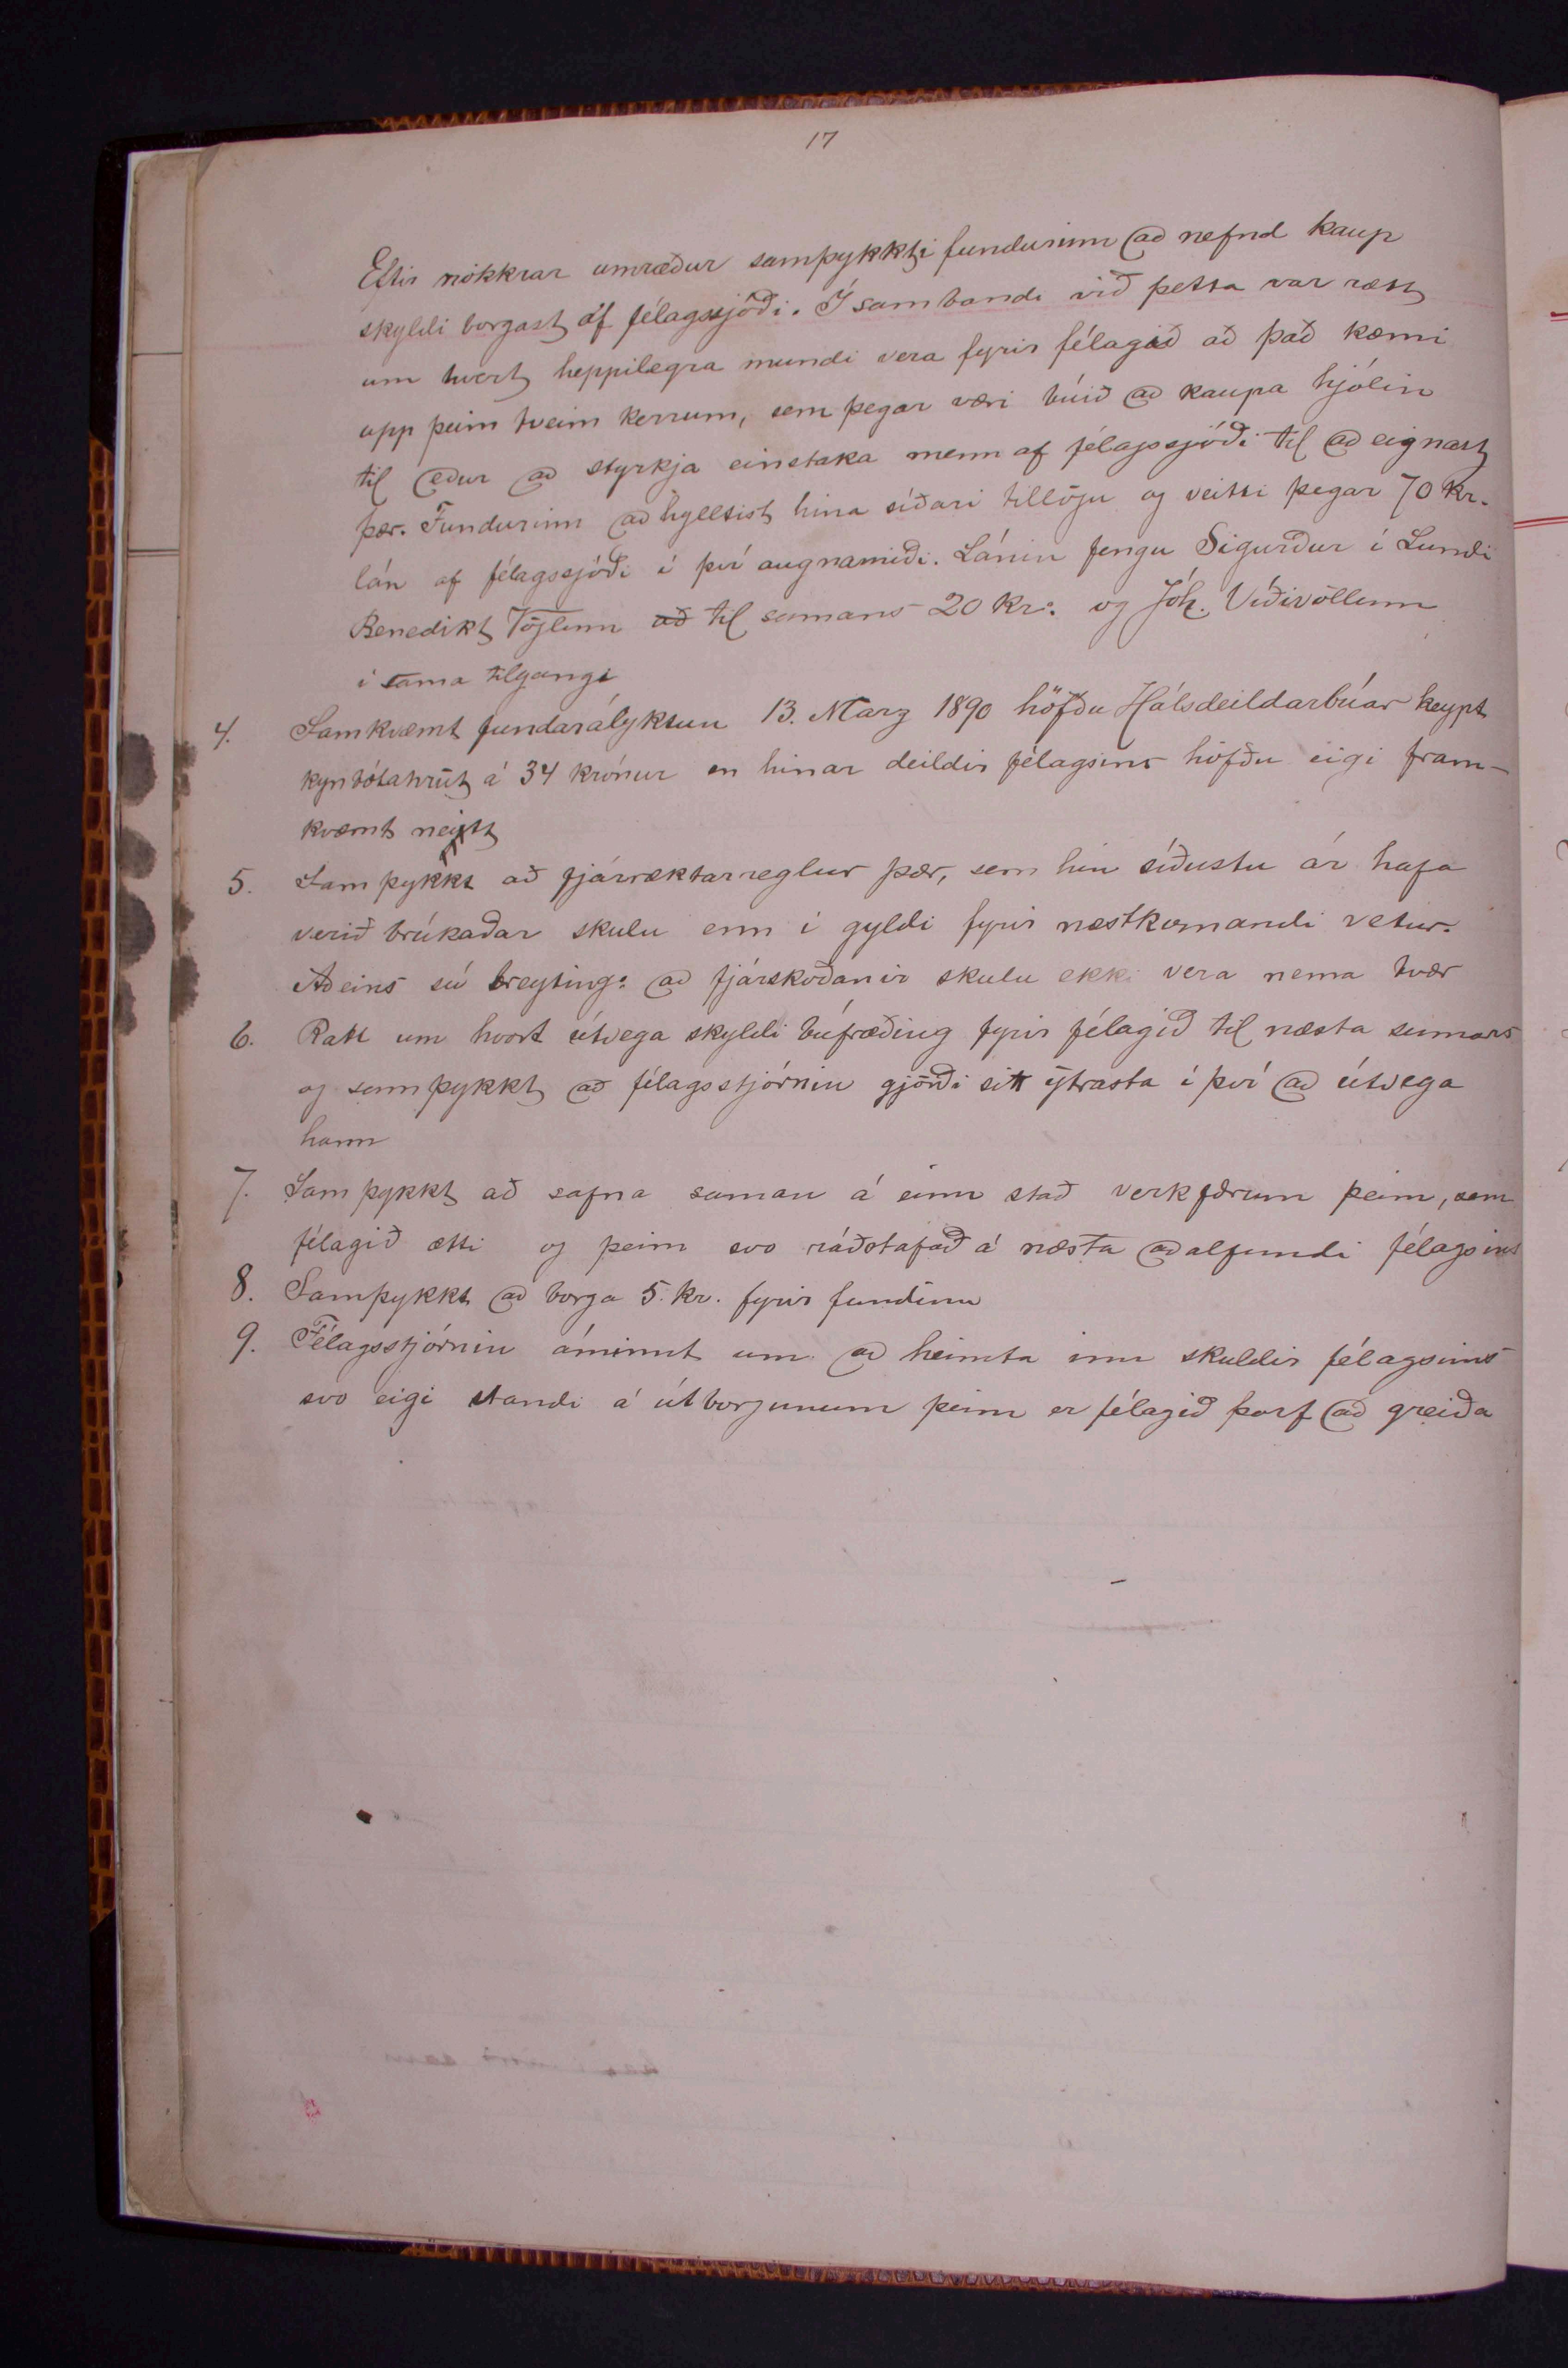 17
Eftir nokkrar umræður samþykkti fundurinn að nefnd kaup
skyldi borgast af félagssjóði. Í sambandi við þetta var rætt
um hvert heppilegra mundi vera fyrir félagið að það kæmi
upp þeim tveim kerrum, sem þegar væri búið að kaupa hjólin
til eður að styrkja einstaka menn af félagssjóði til að eignast
þær. Fundurinn aðhylltist hina síðari tillögu og veitti þegar 70 kr.
lán af félagssjóði í því augnamiði. Lánin fengu Sigurður í Lundi
Benedikt Vöglum að til samans 20 kr: og Jóh. Víðivöllum
í sama tilgangi
4. Samkvæmt fundarályktun 13. Marz 1890 höfðu Hálsdeildarbúar keypt
kynbótahrút á 34 krónur en hinar deildir félagsins höfðu eigi fram-
kvæmt neitt
5. Samþykkt að fjárræktarreglur þær, sem hin síðustu ár hafa
verið brúkaðar skulu enn í gyldi fyrir næstkomandi vetur.
Aðeins sú breyting: að fjárskoðanir skulu ekki vera nema tvær
6. Rætt um hvort útvega skyldi búfræðing fyrir félagið til næsta sumars
og samþykkt að félagsstjórnin gjörði sitt ýtrasta í því að útvega
hann
7. Samþykkt að safna saman á einn stað verkfærum þeim, sem
félagið ætti og þeim svo ráðstafað á næsta aðalfundi félagsins
8. Samþykkt að borga 5. kr. fyrir fundinn
9. Félagsstjórnin áminnt um að heimta inn skuldir félagsins
svo eigi standi á útborgunum þeim er félagið þarf að greiða